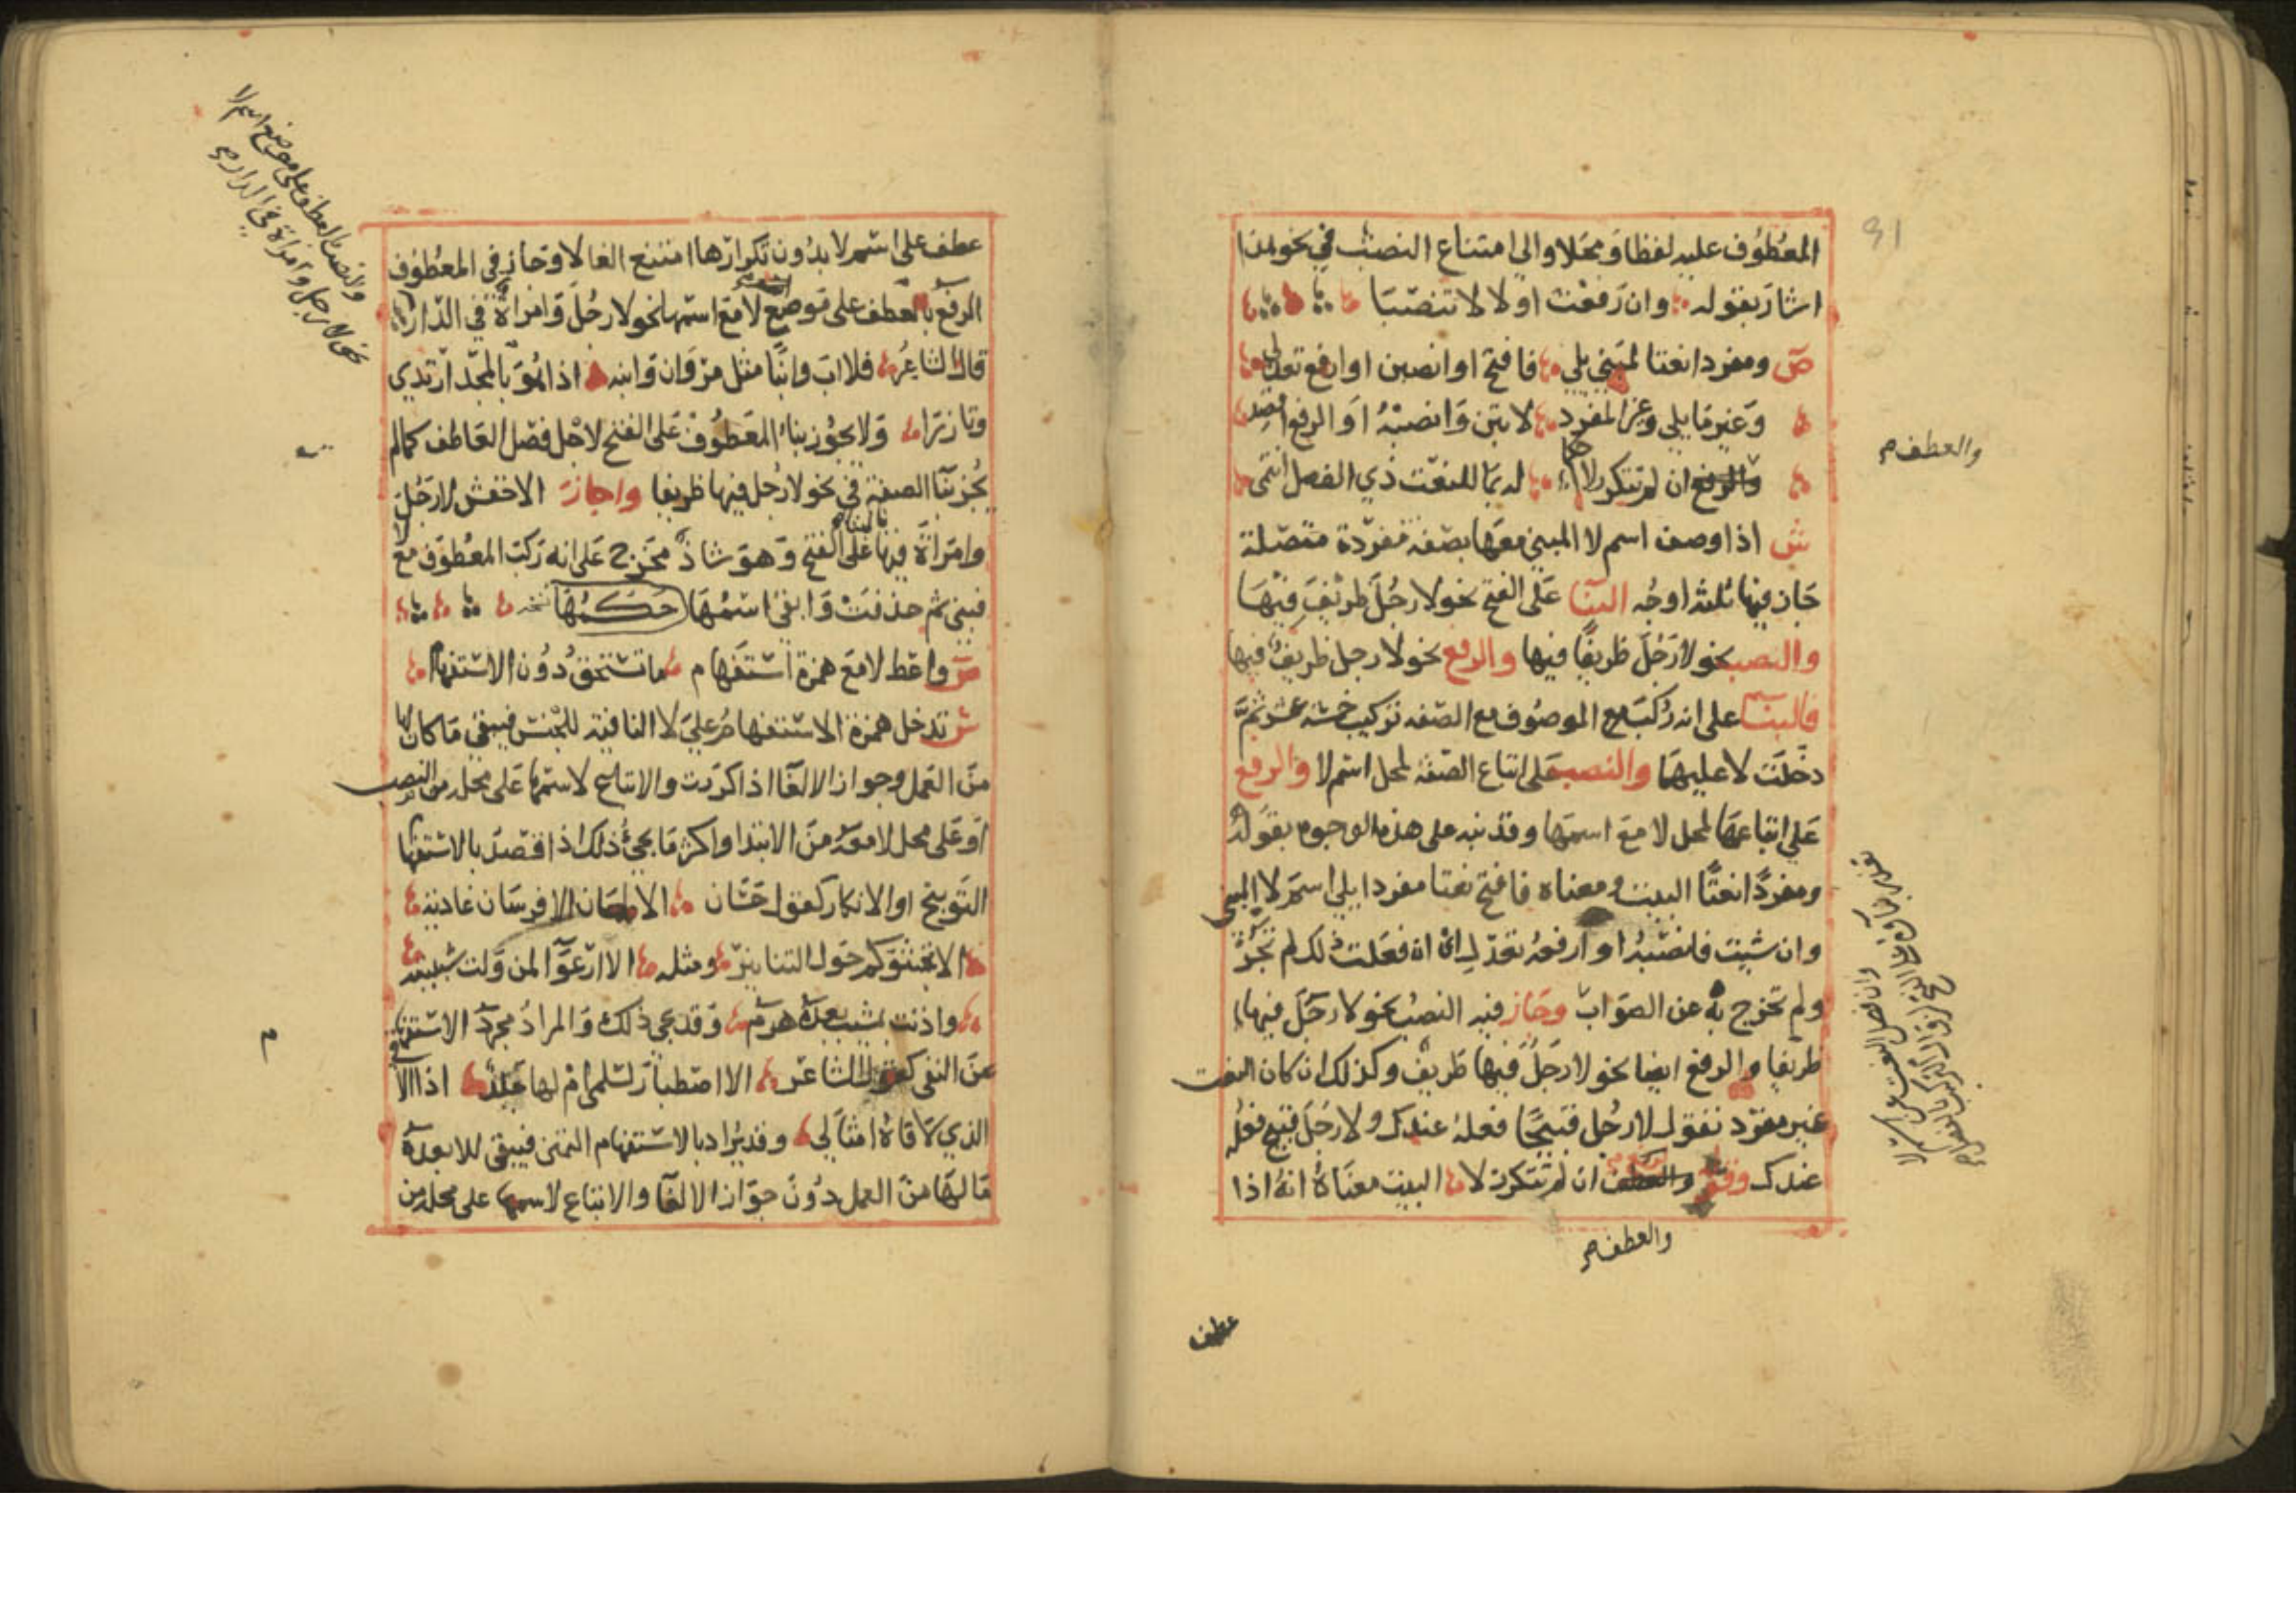 المعطوف عليه لفظا ومحلا والى امتناع النصب في نحو هذا
اشار بقوله وان رفعت اولا لا تنصبا
ص ومفردا نعتا لمبني يلي فافتح او انصبن او ارفع تعدل
وغير ما يلي وغير المفرد لا تبن وانصبه او الرفع اقصد
والعطف ان لم تتكرر لا احكما له بما للنعت ذي الفصل انتمى
ش اذا وصف اسم لا المبني معها بصفة مفردة متصلة
جاز فيها ثلثة اوجه البنا على الفتح نحو لا رجل ظريف فيها
والنصب نحو لا رجل ظريفا فيها والرفع نحو لا رجل ظريف فيها
فالبنا على انه ركب الموصوف مع الصفه تركيب خمسة عشر ثم
دخلت لا عليها والنصب على اتباع الصفة لمحل اسم لا والرفع
على اتباعها لمحل لا مع اسمها وقد نبه على هذه الوجوه بقوله
ومفردا نعتا البيت ومعناه فافتح نعتا مفردا يلي اسم لا المبني
وان شيت فانصبه او ارفعه تعدل اي ان فعلت ذلك لم تجر
ولم تخرج به عن الصواب وجاز فيه النصب نحو لا رجل فيها
ظريفا والرفع ايضا نحو لا رجل فيها ظريف وكذلك ان كان النعت
غير مفرد تقول لا رجل قبيحا فعله عندك ولا رجل قبيح فعله
عندك وقوله والعطف ان لم تتكرر لا البيت معناه انه اذا
والعطف
والعطف
عطف
عطف على اسم لا بدون تكرارها امتنع الغا لا وجاز في المعطوف
الرفع بالعطف على موضع لا مع اسمها نحو لا رجل وامراة في الدار
قال الشاعر فلا اب وابنا مثل مروان وابنه اذا هو بالمجد ارتدي
وتازرا ولا يجوز بناء المعطوف على الفتح لاجل فصل العاطف كما لم
يجز بنا الصفة في نحو لا رجل فيها ظريفا واجاز الاخفش لا رجل
وامراة فيها بالبناء على الفتح وهو شاذ مخرج على انه ركب المعطوف مع لا
فبني ثم حذفت وابقى اسمها حكمها
ص واعط لا مع همزة استفهام ما تستحق دون الاستفهام
ش تدخل همزة الاستفهام علي لا النافية للجنس فيبقى ما كان لها
من العمل وجواز الالغا اذا كررت والاتباع لاسمها على محله من النصب
او على محل لا معه من الابتدا واكثر ما يجئ ذلك اذا قصد بالاستفهام
التوبيخ او الانكار كقول حسان الا طعان الا فرسان عادية
الا تجشؤكم حول التنانير ومثله الا ارعوا لمن ولت شبيبته
واذنت بمشيب بعده هرم وقد يجي ذلك والمراد مجرد الاستفهام
عن النفي كقول الشاعر الا اصطبار لسلمى ام لها جلد اذا الاقي
الذي لاقاه امثالي وقد يراد بالاستفهام التمني فيبقى للا بعده
ما لها من العمل دون جواز الالغا والاتباع لاسمها على محله من
والنصب بالعطف على موضع اسم لا
نحو لا رجل وامراة في الدار